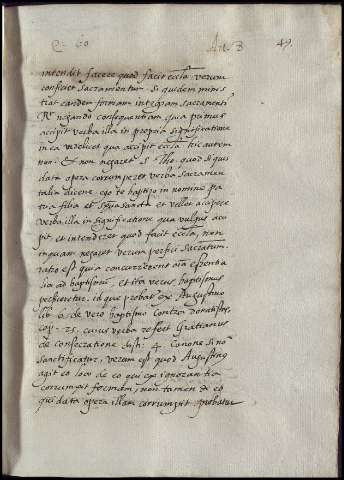 Q. 60 Art. 8 49.
intendit facere quod facit eccla. verum
conficiet sacramentum. si quidem minis
trat eandem formam integram sacramenti
Rr. negando consequentiam quia primus
accipit verba illa in propria significatione
in ea videlicet qua accipit eccla. hic autem
non. et non negaret S. Tho. quod si quis
data opera corrumperet verba sacramen
talia dicens ego te baptizo in nomine pa
tria filia et spiritua sancta et vellet accipere
verba illa in significatione qua vulgus acci
pit. et intenderet quod facit eccla. non
inquam negaret verum perfici sacratum.
ratio est quia concurrerent oia essentia
lia ad baptismum. et ita verus baptismus
perficeretur. id que probat ex Augustino
lib. 6. de vero baptismo contra donatistas
cap. 25. cuius verba refert Gratianus
de consecratione dist. 4. canone si non
sanctificatur, verum est quod Augustinus
agit eo loco de eo qui ex ignorantia
corrumpit formam, non tamen de eo
qui data opera illam corrumpit. probatur